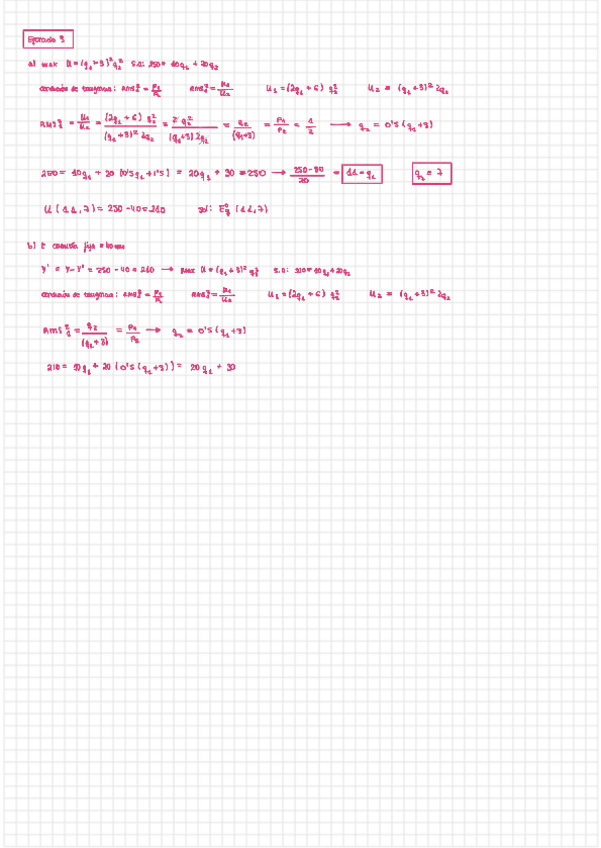 Ejercicio 3
a) max U = (q₁+3)² q₂² s.a: 250 = 10q₁ + 20q₂
condición de tangencia: RMS = P₁/P₂ RMS = U₁/U₂ U₁ = (2q₁ + 6) q₂² U₂ = (q₁+3)² 2q₂
RMS = U₁/U₂ = (2q₁ + 6) q₂² / (q₁+3)² 2q₂ = 2 q₂² / (q₁+3) 2q₂ = q₂/(q₁+3) = P₁/P₂ = 1/2 → q₂ = 0'5 (q₁+3)
250 = 10q₁ + 20 [0'5q₁ + 1'5] = 20q₁ + 30 = 250 → 250-30/20 = 11 = q₁ q₂ = 7
U (11,7) = 250 - 40 = 210 sol: (11,7)
b) fija
Y' = Y - = 250 - 40 = 210 → max U = (q₁+3)² q₂² s.a: 210 = 10q₁ + 20q₂
condición de tangencia: RMS = P₁/P₂ RMS = U₁/U₂ U₁ = (2q₁ + 6) q₂² U₂ = (q₁+3)² 2q₂
RMS = q₂/(q₁+3) = P₁/P₂ → q₂ = 0'5 (q₁+3)
210 = 10q₁ + 20 (0'5 (q₁+3)) = 20q₁ + 30